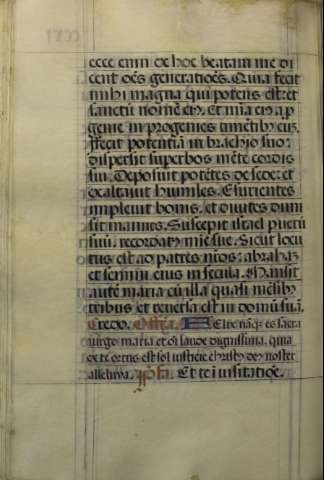 ecce enim ex hoc beatam me di
cent oēs generatioēs. Quia fecit
mihi magna qui potens est: et
sanctū nomē eiꝰ. Et mīa eiꝰ a ꝓ
genie in progenies timētibꝰ eū.
ffecit potentiā in brachio suo:
dispersit superbos mēte cordis
sui. Deposuit potētes de sede: et
exaltauit humiles. Esurientes
impleuit bonis. et diuites dimi
sit inanes. Suscepit israel puerū
suū. recordatꝰ mīe sue. Sicut locu
tus est ad patres nr̄os: abrahaȝ
et semini eius in secula. Mansit
autē maria cū illa quasi mēsibꝰ
tribus et reuersa est in domū suā.
Credo. Off̄a. Felix nāqꝫ es sacra
uirgo maria et oī laude dignissima. quia
ex te ortus est sol iustitie xp̄s deꝰ noster
alleluya. Et te ī uisitatiōe.